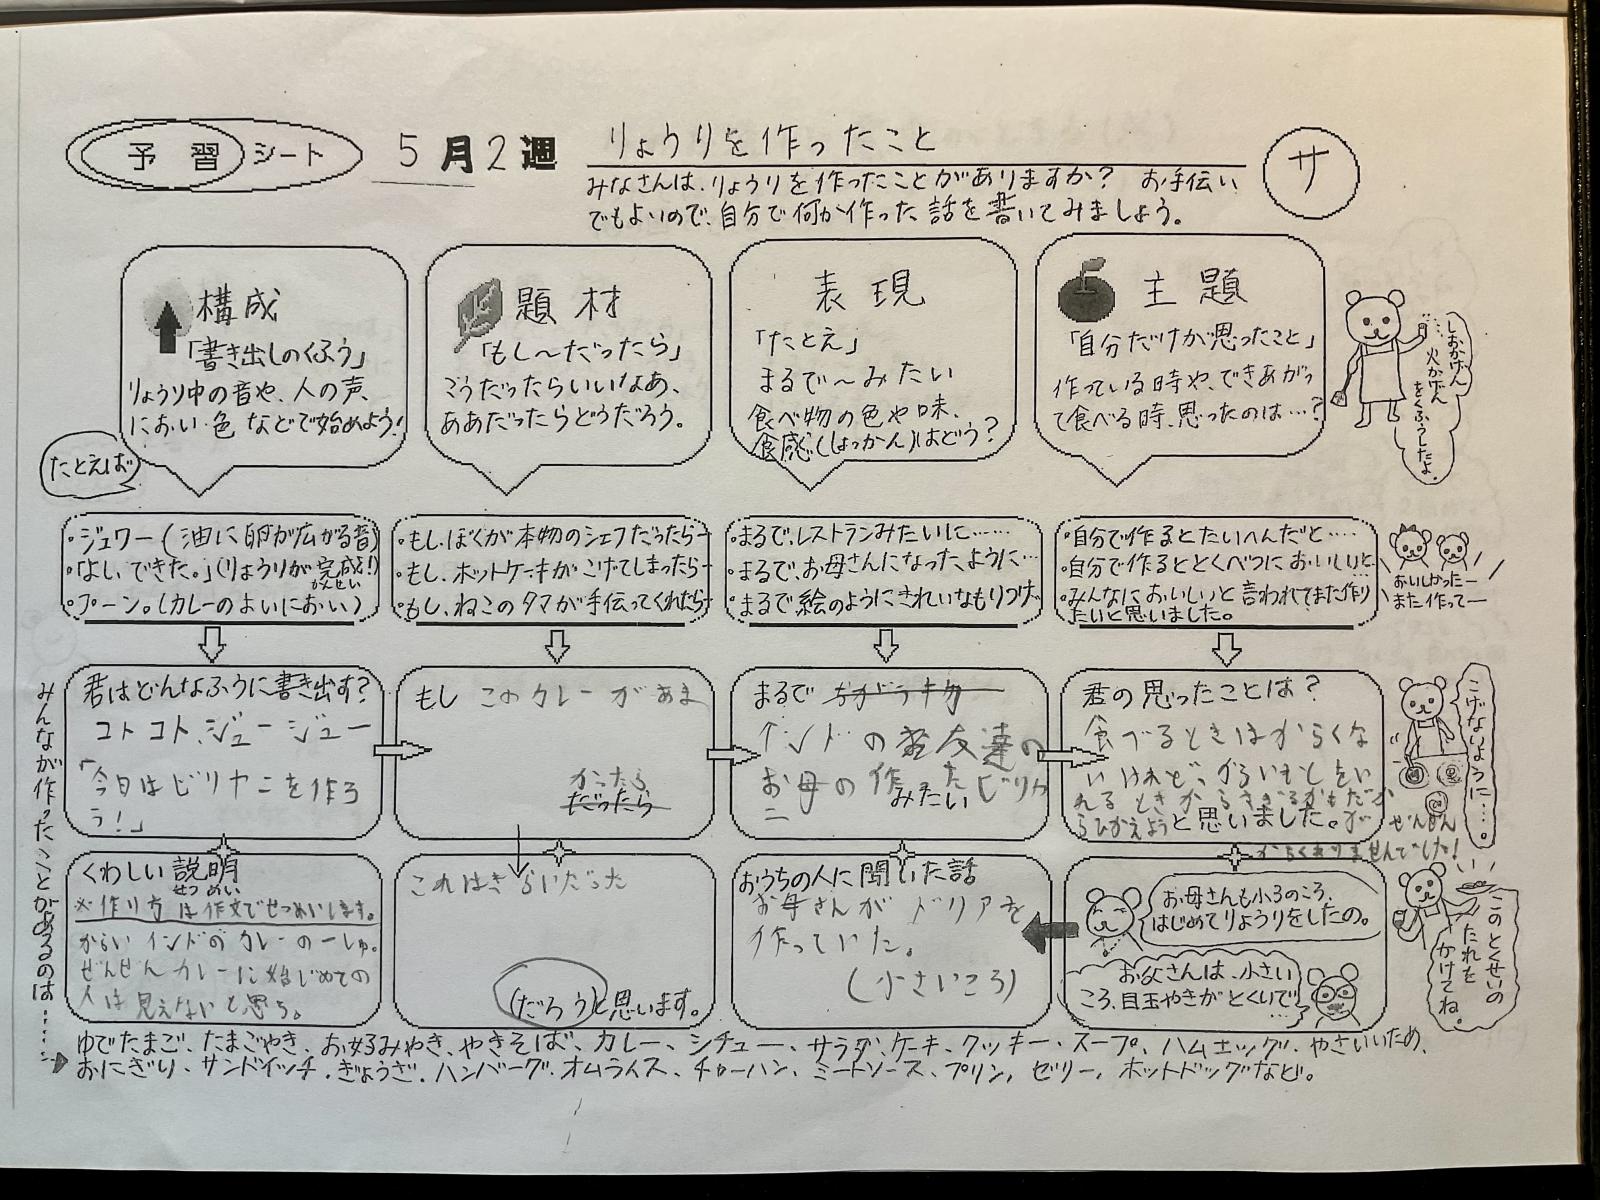 予習シート 5月2週 りょうりを作ったこと サ
みなさんは、りょうりを作ったことがありますか? お手伝い
でもよいので、自分で何か作った話を書いてみましょう。
構成
「書き出しのくふう」
りょうり中の音や、人の声、
におい・色などで始めよう!
題材
「もし〜だったら」
こうだったらいいなあ、
ああだったらどうだろう。
表現
「たとえ」
まるで〜みたい
食べ物の色や味、
食感(しょっかん)はどう?
主題
「自分だけが思ったこと」
作っている時や、できあがっ
て食べる時、思ったのは…?
しおかげん
火かげん
をくふうしたよ。
たとえば
・ジュワー(油に卵が広がる音)
・「よし、できた。」(りょうりが完成!)
かんせい
・プーン。(カレーのよいにおい)
・もし、ぼくが本物のシェフだったらー
・もし、ホットケーキがこげてしまったらー
・もし、ねこのタマが手伝ってくれたらー
・まるで、レストランみたいに……
・まるで、お母さんになったように…
・まるで絵のようにきれいなもりつけ
・自分で作るとたいへんだと……
・自分で作るととくべつにおいしいと
・みんなにおいしいと言われてまた作り
たいと思いました。
おいしかったー
また作ってー
みんなが作ったことがあるのは……
君はどんなふうに書き出す?
コトコト、ジュージュー
「今日はビリヤニを作ろ
う!」
もし このカレーがあま
かったら
だったら
まるで
インドの友達の
お母の作った
みたい ビリヤ
ニ
君の思ったことは?
食べるときはからくな
いけれど、からいもとをい
れるときからすぎるかもだか
らひかえようと思いました。が ぜんぜん
からくありませんでした!
こげないように…。
くわしい説明
せつめい
※作り方は作文でせつめいします。
からいインドのカレーの一しゅ。
ぜんぜんカレーに始じめての
人は見えないと思う。
これはきらいだった
(だろう)と思います。
おうちの人に聞いた話
お母さんがドリアを
作っていた。
(小さいころ)
お母さんも小3のころ、
はじめてりょうりをしたの。
お父さんは、小さい
ころ、目玉やきがとくいで…
このとくせいの
たれを
かけてね。
ゆでたまご、たまごやき、お好みやき、やきそば、カレー、シチュー、サラダ、ケーキ、クッキー、スープ、ハムエッグ、やさいいため、
おにぎり、サンドイッチ、ぎょうざ、ハンバーグ、オムライス、チャーハン、ミートソース、プリン、ゼリー、ホットドッグなど。